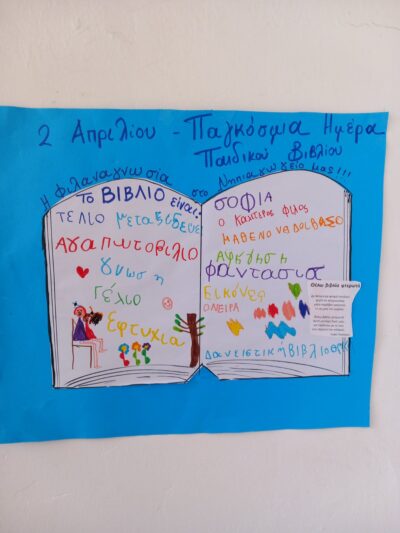 2 Απριλίου - Παγκόσμια Ημέρα
Παιδικού Βιβλίου
Η φιλαναγνωσία στο Νηπιαγωγείο μας!!!
Το ΒΙΒΛΙΟ είναι:
ΤΕΛΙΟ μεταξιδευε
Αγαπωτοβιλιο
γνωση
Γέλιο
Εφτυχια
ΣΟΦΙΑ
Ο Καλητερος φιλος
ΜΑΘΕΝΟ ΝΑ ΔΟΙΒΑΣΟ
Αφηγηση
φαντασια
Εικόνες
ΟΝΕΙΡΑ
Δανειστική ΒΙΒΛΙΟΘ
Θέλω βιβλία φτερωτά